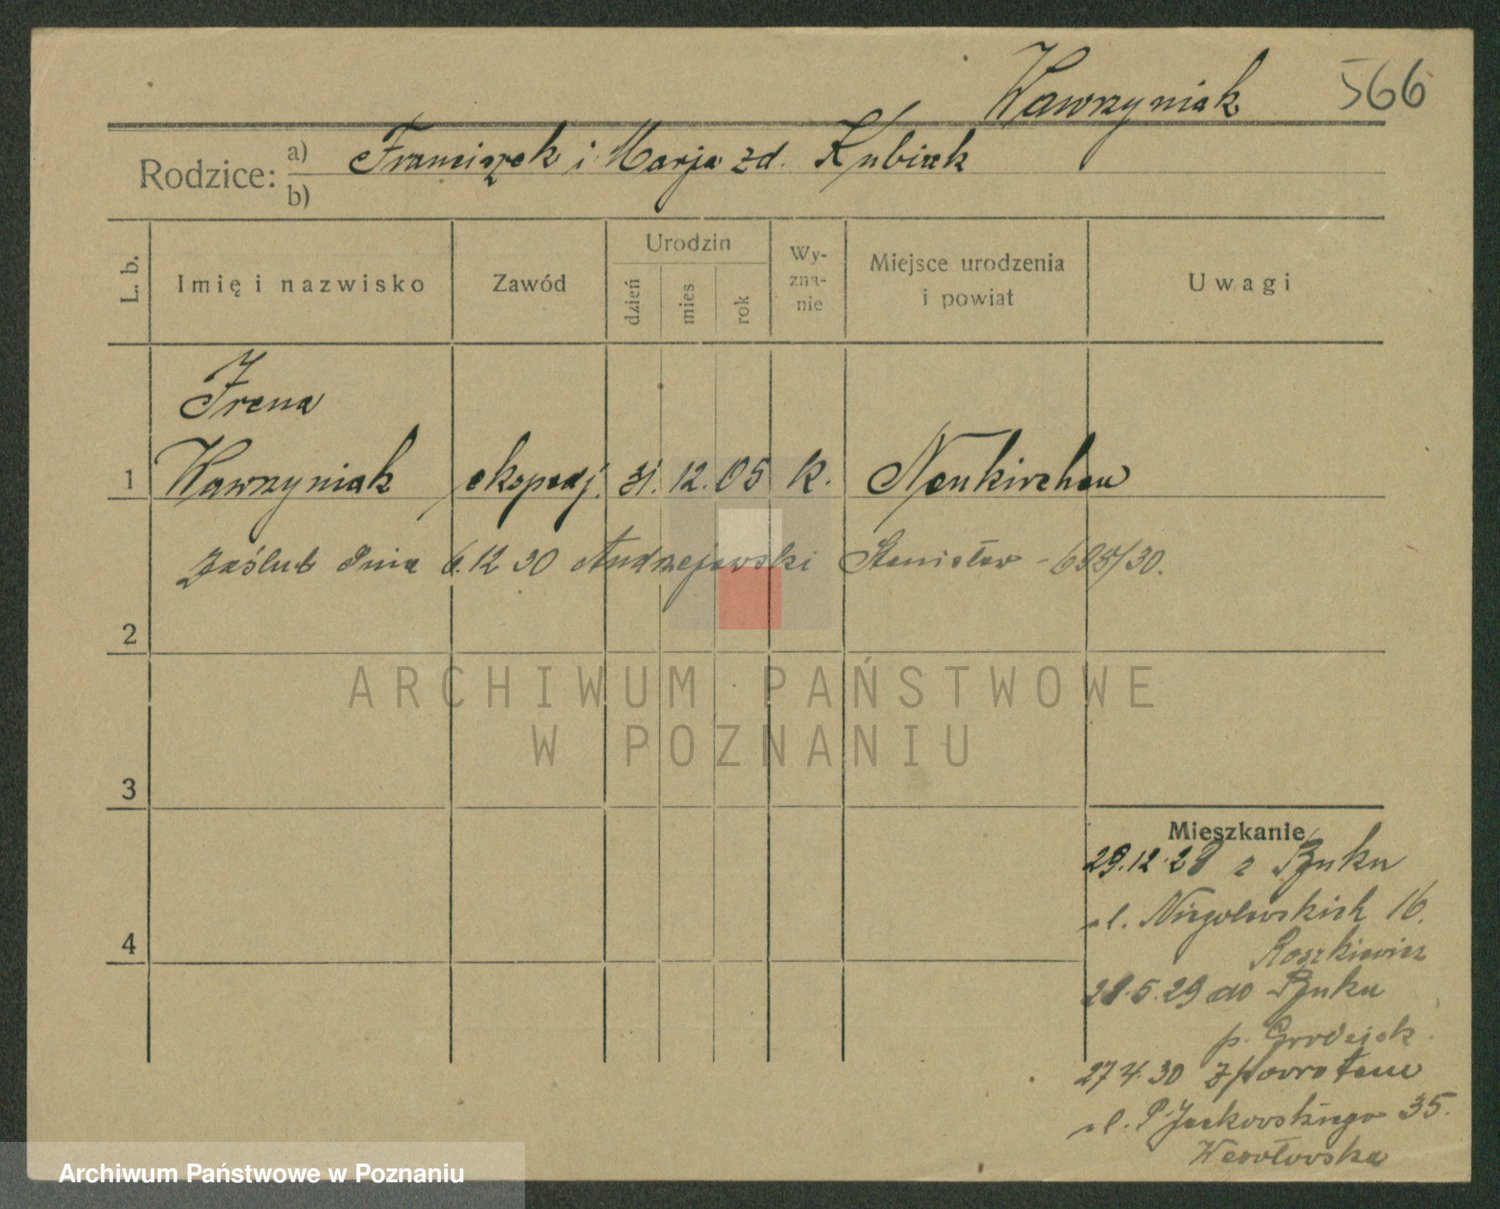 Wawrzyniak 566
Rodzice: a) Franciszek i Marja zd. Kubiak
b)
L. b. Imię i nazwisko Zawód Urodzin dzień mies rok Wy-zna-nie Miejsce urodzenia i powiat Uwagi
Irena
1 Wawrzyniak ekspedj. 31. 12. 05 k. Neukirchen
Zaślub dnia 6.12 30 Andrzejewski Stanisław - 688/30.
2
ARCHIWUM PAŃSTWOWE
W POZNANIU
3
Mieszkanie
29.12.28 z Buku
ul. Niegolewskich 16.
Roszkiewicz
4
28.5.29 do Buku
p. Grodzisk.
27 4. 30 z powrotem
ul. P. Jackowskiego 35.
Wesołowska
Archiwum Państwowe w Poznaniu